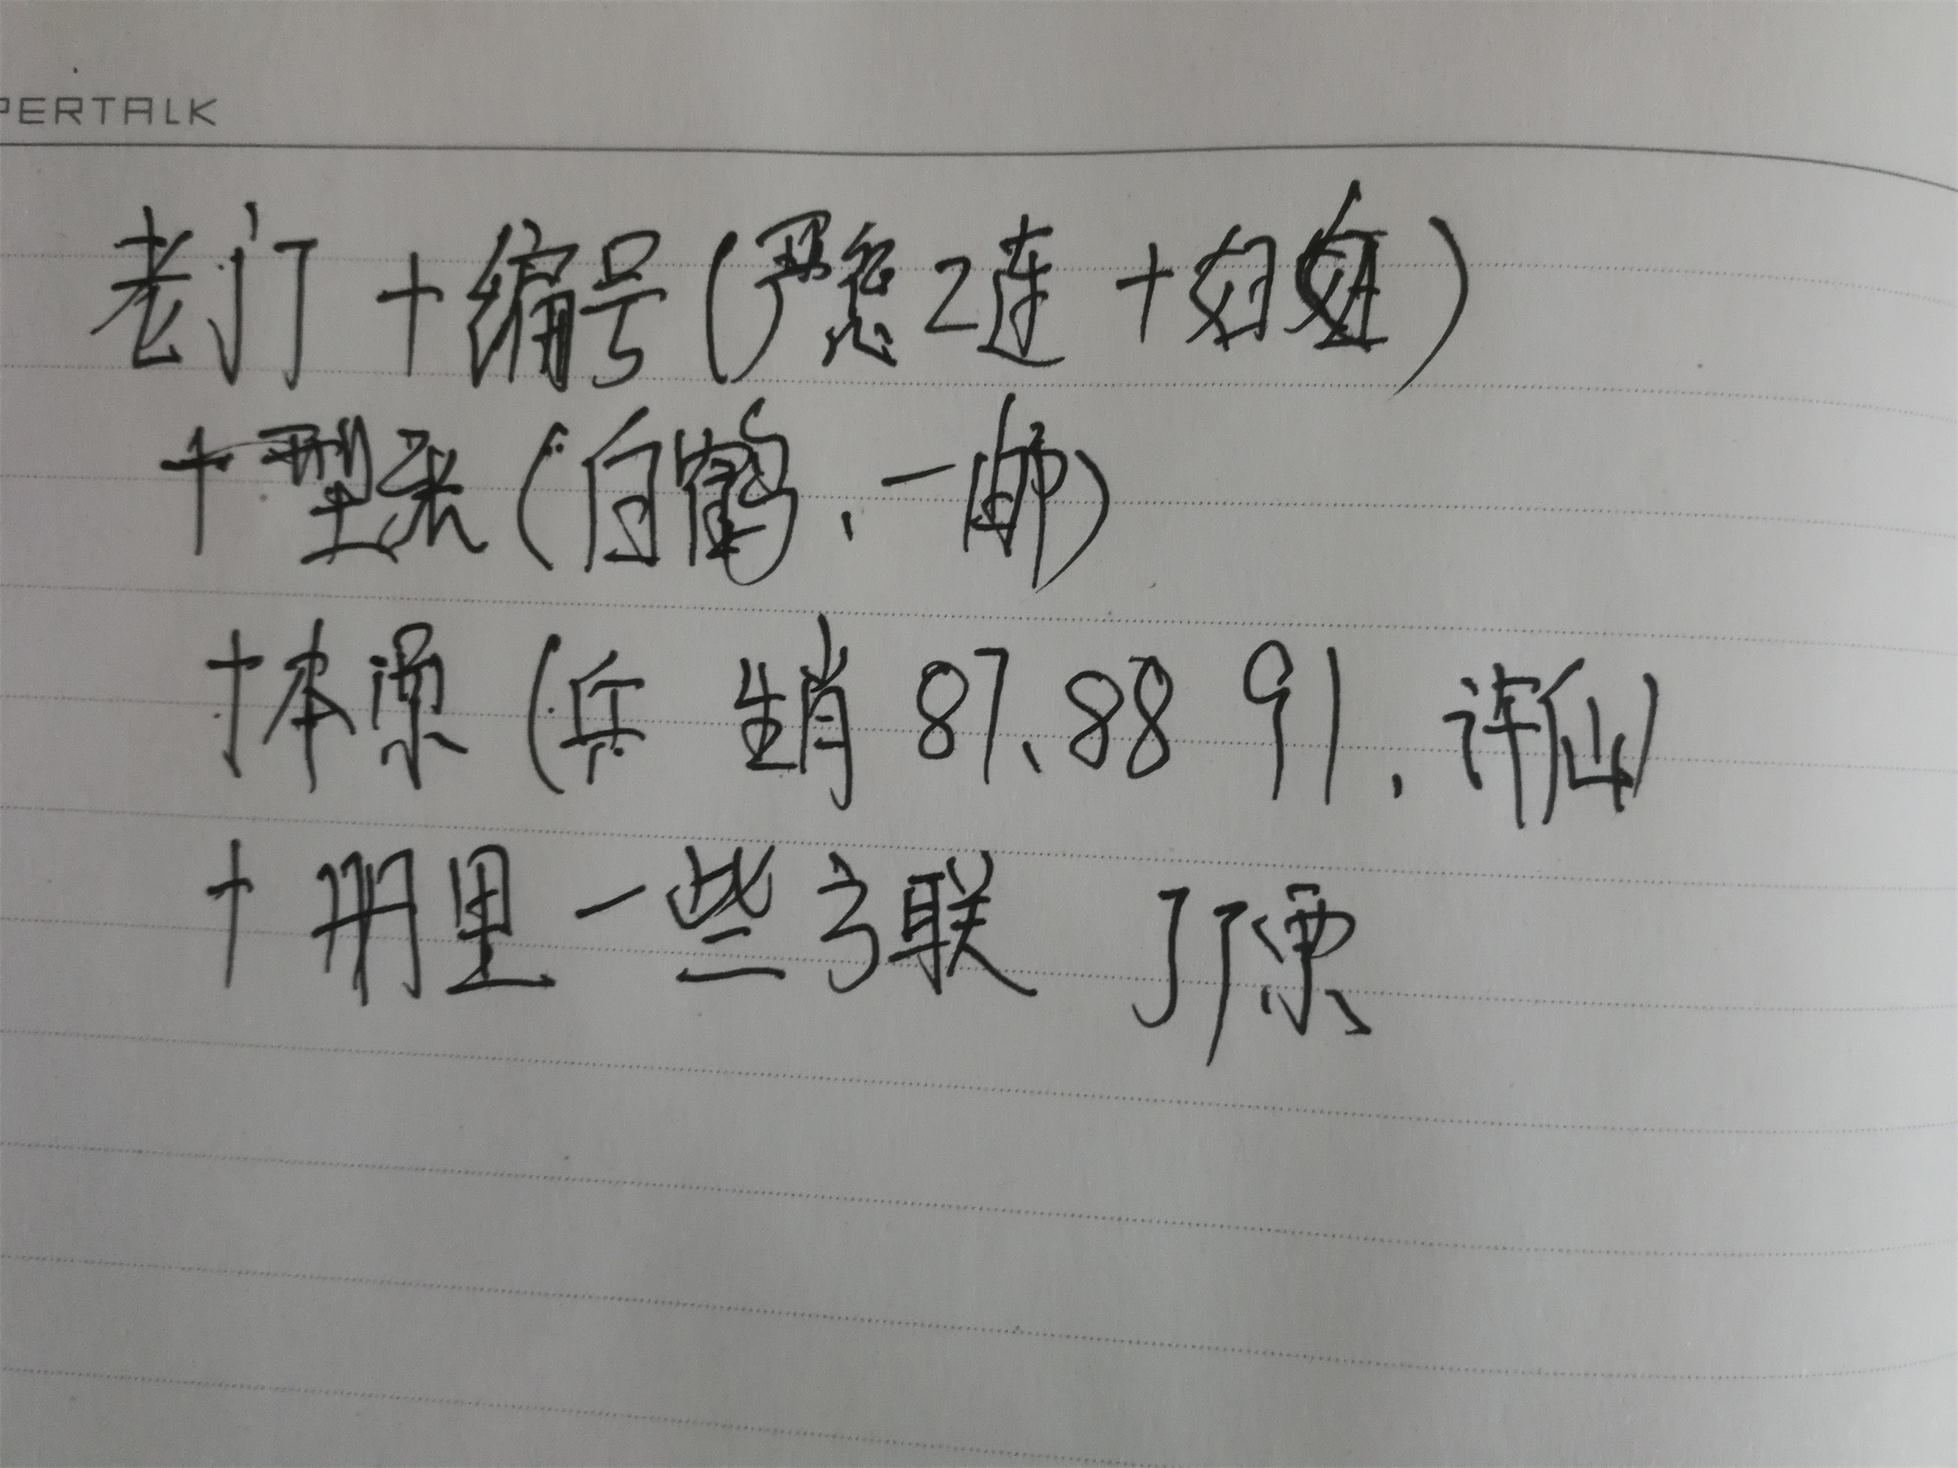 PERTALK
老门+编号(严惩2连+妇
+型张(白鹤、一邮)
+本票(兵 生肖87、88 91,许仙)
+册里一些3联 J厂票